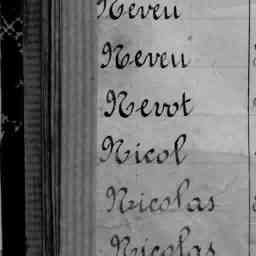 Neveu
Neveu
Nevot
Nicol
Nicolas
Nicolas